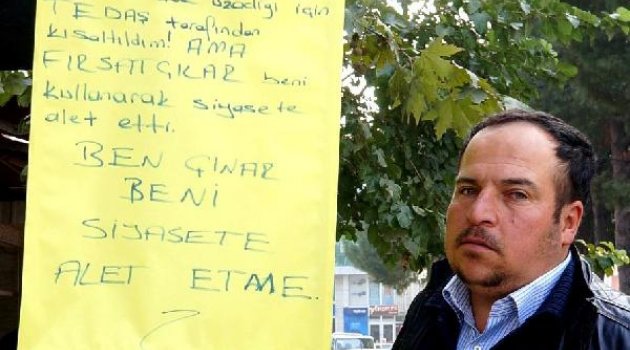 uzadığı için
TEDAŞ tarafından
kısaltıldım! AMA
FIRSATÇILAR beni
kullanarak siyasete
alet etti.
BEN ÇINAR
BENİ
SİYASETE
ALET ETME.